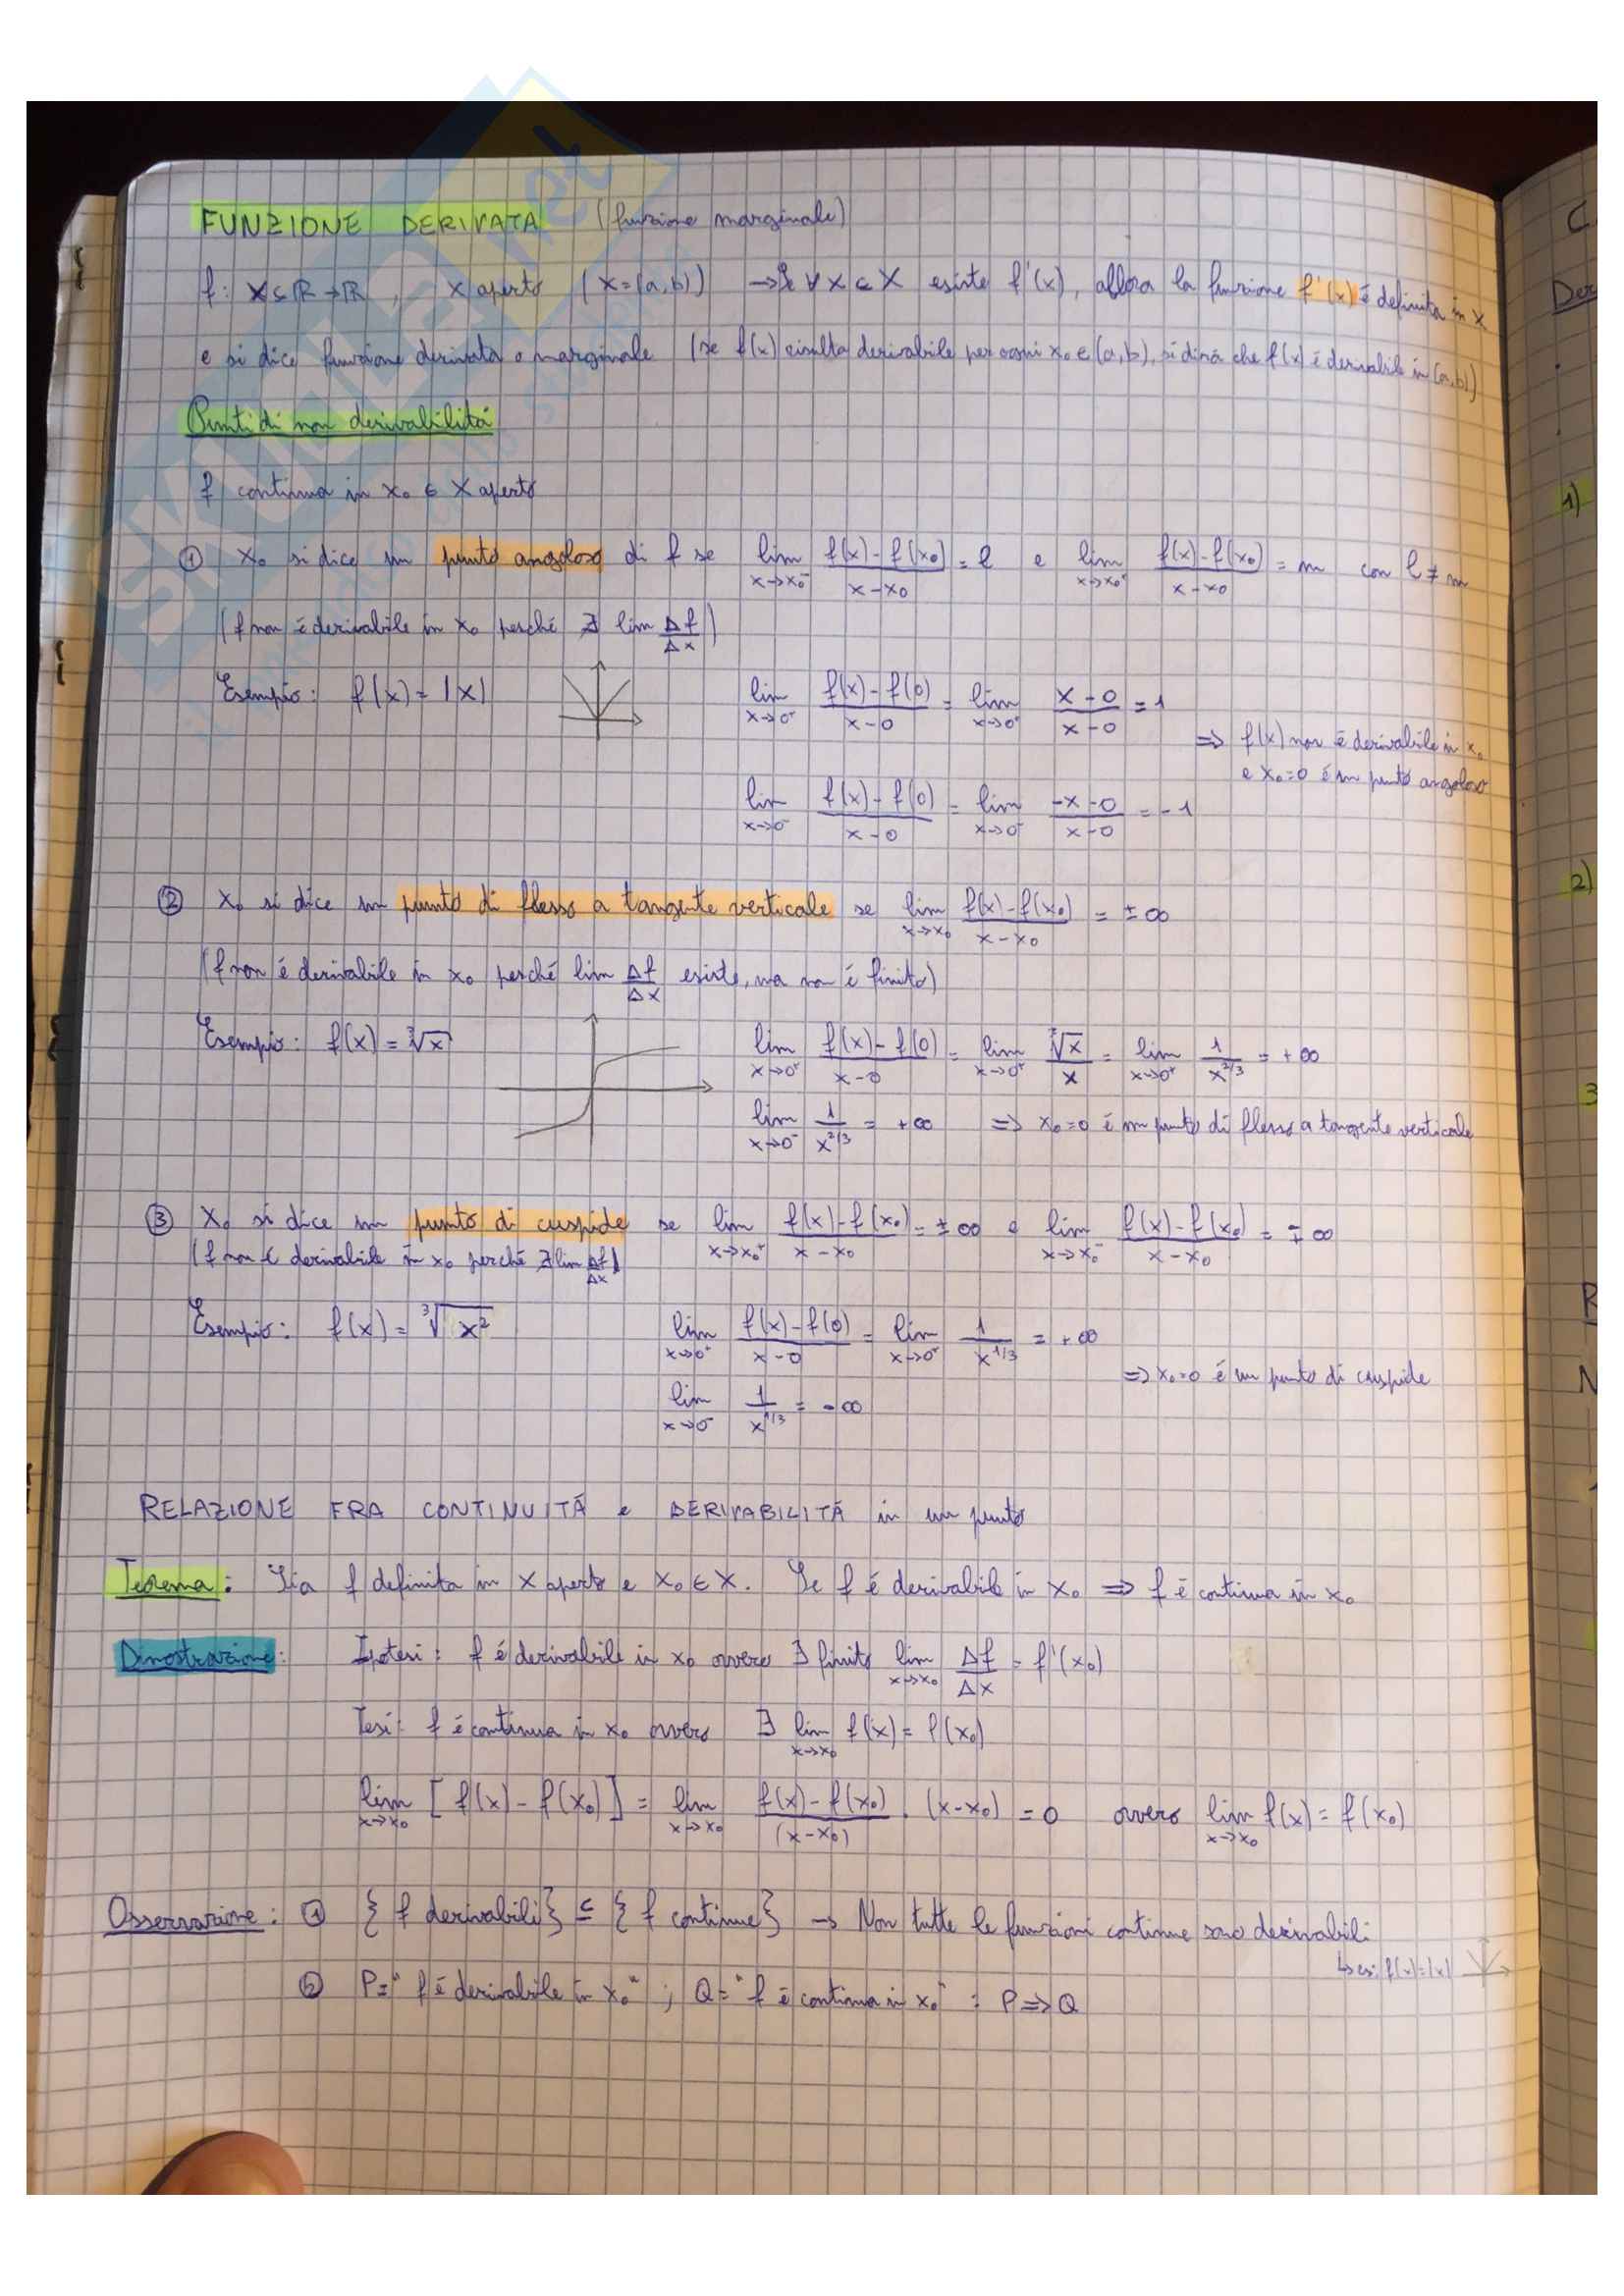 FUNZIONE DERIVATA (funzione marginale)
f: X ⊆ ℝ → ℝ, X aperto (X=(a,b)) → Se ∀ x ∈ X esiste f'(x), allora la funzione f'(x) è definita in X
e si dice funzione derivata o marginale (se f(x) risulta derivabile per ogni x₀ ∈ (a,b), si dirà che f(x) è derivabile in (a,b))
Punti di non derivabilità
f continua in x₀ ∈ X aperto
① x₀ si dice un punto angoloso di f se lim x→x₀⁻ (f(x)-f(x₀))/(x-x₀) = l e lim x→x₀⁺ (f(x)-f(x₀))/(x-x₀) = m con l ≠ m
(f non è derivabile in x₀ perché ∄ lim Δf/Δx)
Esempio: f(x) = |x| lim x→0⁺ (f(x)-f(0))/(x-0) = lim x→0⁺ (x-0)/(x-0) = 1
⇒ f(x) non è derivabile in x₀
e x₀=0 è un punto angoloso
lim x→0⁻ (f(x)-f(0))/(x-0) = lim x→0⁻ (-x-0)/(x-0) = -1
② x₀ si dice un punto di flesso a tangente verticale se lim x→x₀ (f(x)-f(x₀))/(x-x₀) = ±∞
(f non è derivabile in x₀ perché lim Δf/Δx esiste, ma non è finito)
Esempio: f(x) = ∛x lim x→0⁺ (f(x)-f(0))/(x-0) = lim x→0⁺ ∛x/x = lim x→0⁺ 1/x^(2/3) = +∞
lim x→0⁻ 1/x^(2/3) = +∞ ⇒ x₀=0 è un punto di flesso a tangente verticale
③ x₀ si dice un punto di cuspide se lim x→x₀⁺ (f(x)-f(x₀))/(x-x₀) = ±∞ e lim x→x₀⁻ (f(x)-f(x₀))/(x-x₀) = ∓∞
(f non è derivabile in x₀ perché ∄ lim Δf/Δx)
Esempio: f(x) = ∛x² lim x→0⁺ (f(x)-f(0))/(x-0) = lim x→0⁺ 1/x^(1/3) = +∞
⇒ x₀=0 è un punto di cuspide
lim x→0⁻ 1/x^(1/3) = -∞
RELAZIONE FRA CONTINUITÀ e DERIVABILITÀ in un punto
Teorema: Sia f definita in X aperto e x₀ ∈ X. Se f è derivabile in x₀ ⇒ f è continua in x₀
Dimostrazione: Ipotesi: f è derivabile in x₀ ovvero ∃ finito lim x→x₀ Δf/Δx = f'(x₀)
Tesi: f è continua in x₀ ovvero ∃ lim x→x₀ f(x) = f(x₀)
lim x→x₀ [f(x)-f(x₀)] = lim x→x₀ (f(x)-f(x₀))/(x-x₀) · (x-x₀) = 0 ovvero lim x→x₀ f(x) = f(x₀)
Osservazione: ① {f derivabili} ⊆ {f continue} → Non tutte le funzioni continue sono derivabili
↳ es: f(x)=|x|
② P="f è derivabile in x₀"; Q="f è continua in x₀" : P ⇒ Q